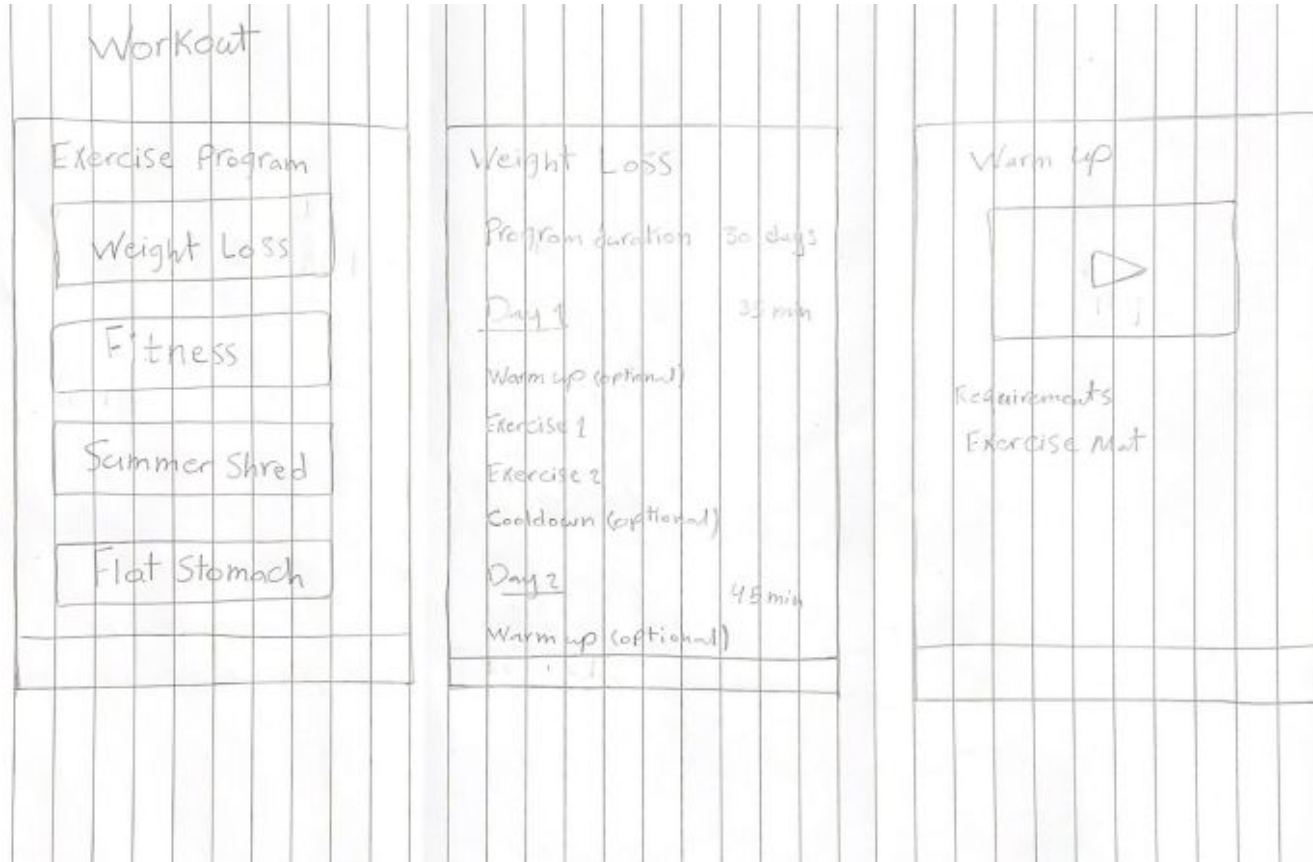 Workout
Exercise Program
Weight Loss
Fitness
Summer Shred
Flat Stomach
Weight Loss
Program duration 30 days
Day 1 35 min
Warm up (optional)
Exercise 1
Exercise 2
Cooldown (optional)
Day 2 45 min
Warm up (optional)
Warm up
Requirements
Exercise Mat